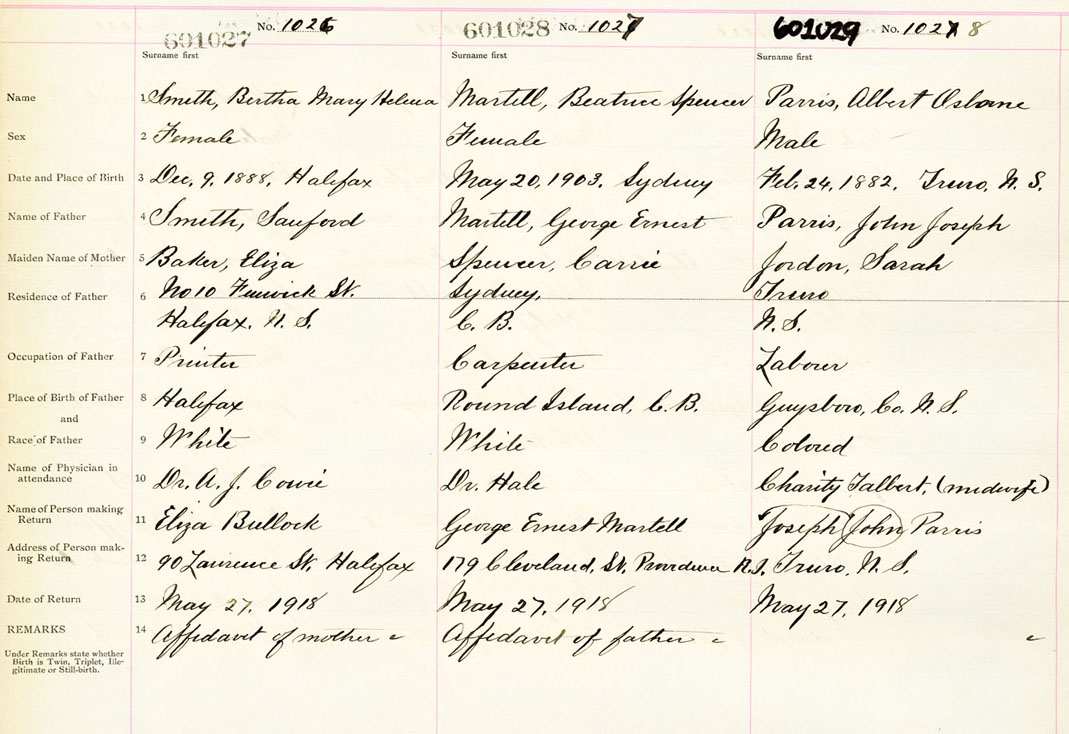 601027 No. 1026 601028 No. 1027 601029 No. 1027 8
Surname first Surname first Surname first
Name 1 Smith, Bertha Mary Helena Martell, Beatrice Spencer Parris, Albert Osborne
Sex 2 Female Female Male
Date and Place of Birth 3 Dec. 9, 1888, Halifax May 20, 1903. Sydney Feb. 24, 1882. Truro, N. S.
Name of Father 4 Smith, Sanford Martell, George Ernest Parris, John Joseph
Maiden Name of Mother 5 Baker, Eliza Spencer, Carrie Jordon, Sarah
Residence of Father 6 No 10 Fenwick St. Sydney, Truro
Halifax. N. S. C. B. N. S.
Occupation of Father 7 Printer Carpenter Labour
Place of Birth of Father 8 Halifax Round Island, C. B. Guysboro, Co. N. S.
and
Race of Father 9 White White Colored
Name of Physician in
attendance 10 Dr. A. J. Cowie Dr. Hale Charity Talbert, (midwife)
Name of Person making
Return 11 Eliza Bullock George Ernest Martell Joseph John Parris
Address of Person mak-
ing Return 12 90 Lawrence St. Halifax 179 Cleveland, St. Providence R.I. Truro, N. S.
Date of Return 13 May 27, 1918 May 27, 1918 May 27, 1918
REMARKS 14 Affidavit of mother Affidavit of father
Under Remarks state whether
Birth is Twin, Triplet, Ille-
gitimate or Still-birth.